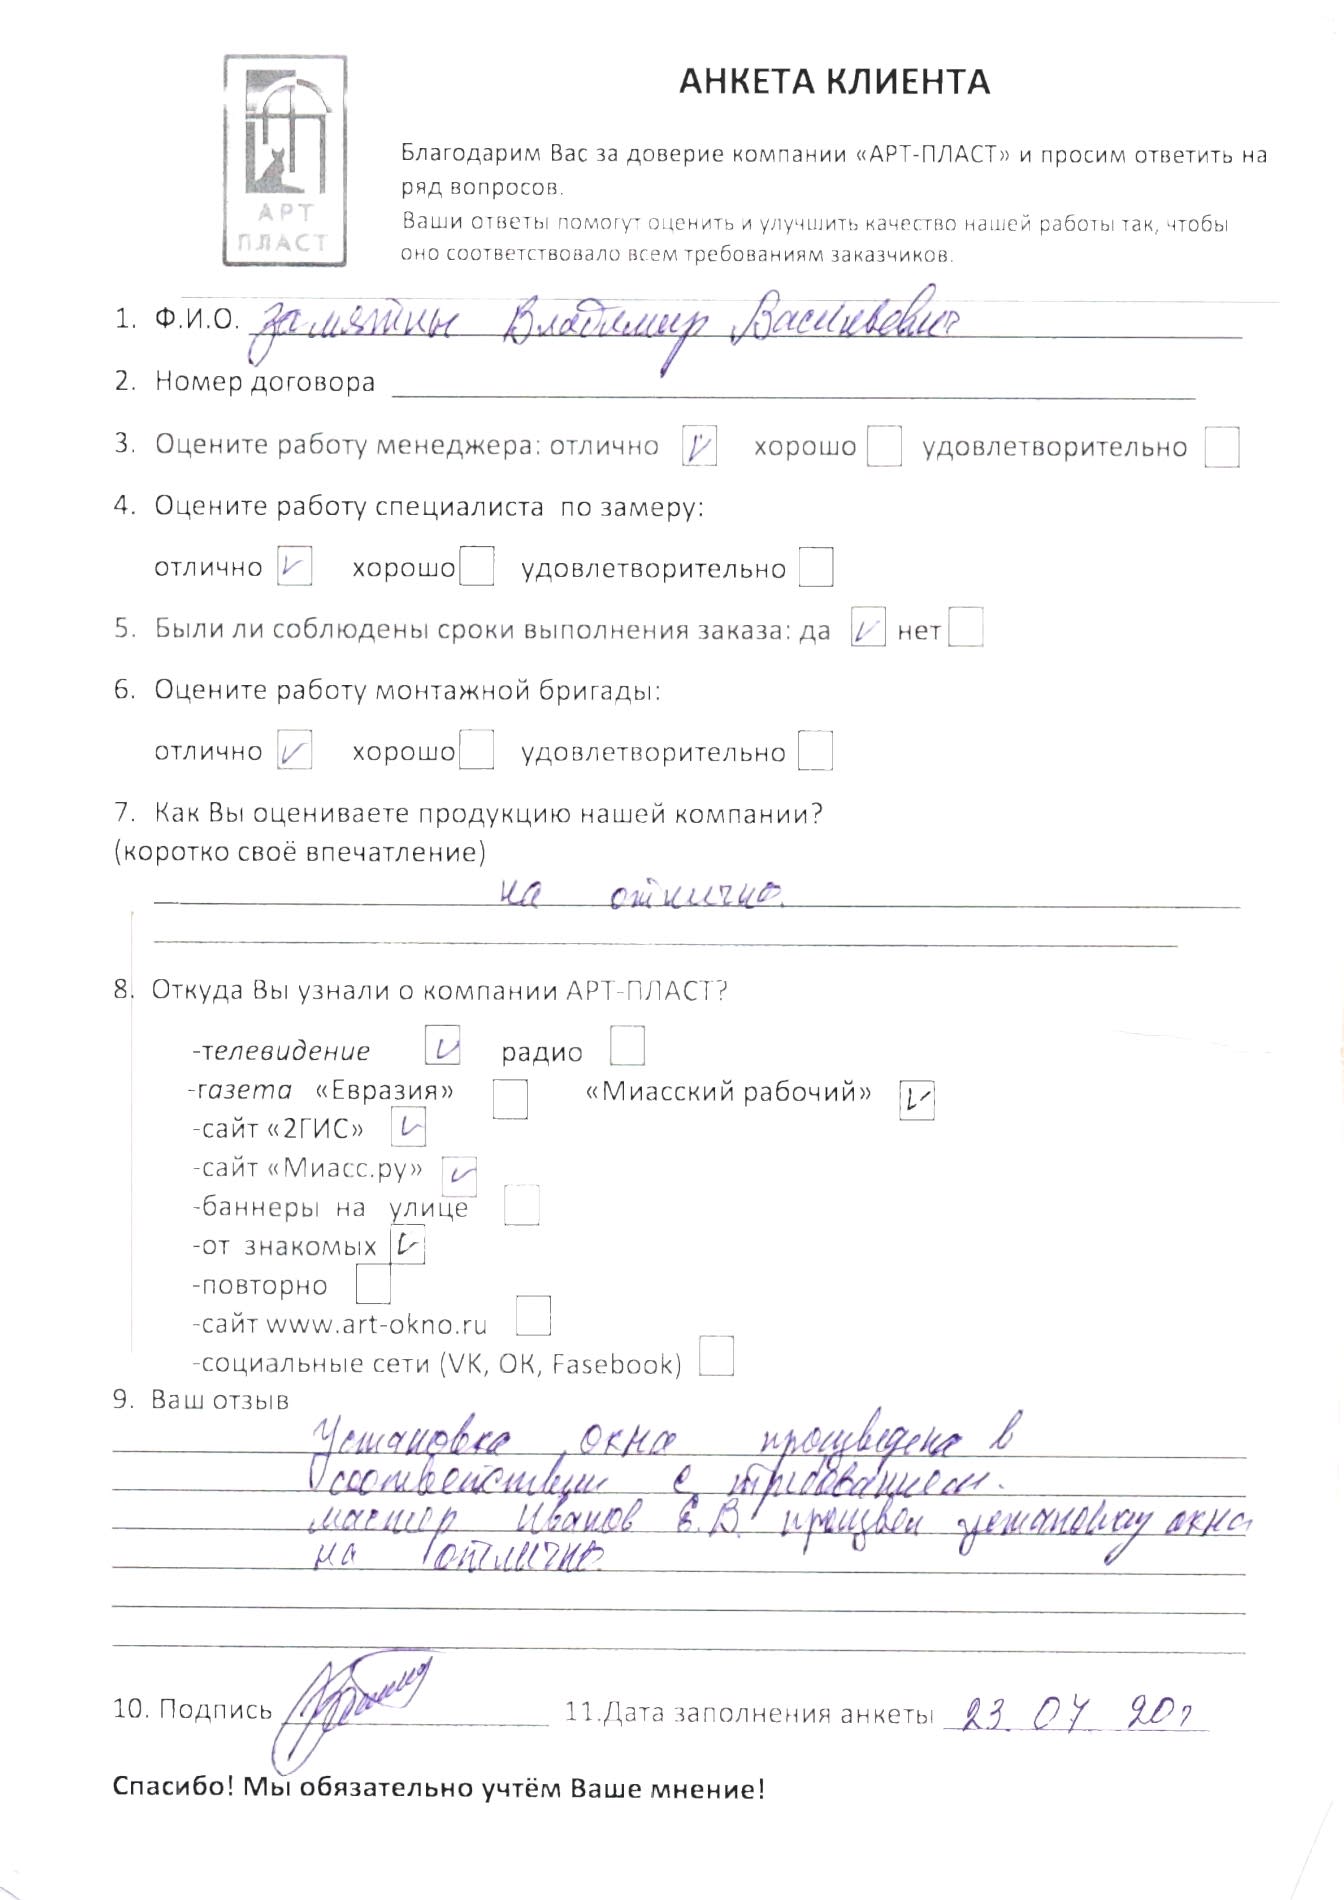 АНКЕТА КЛИЕНТА
АРТ
ПЛАСТ
Благодарим Вас за доверие компании «АРТ-ПЛАСТ» и просим ответить на
ряд вопросов.
Ваши ответы помогут оценить и улучшить качество нашей работы так, чтобы
оно соответствовало всем требованиям заказчиков.
1. Ф.И.О. Владимир Васильевич
2. Номер договора
3. Оцените работу менеджера: отлично хорошо удовлетворительно
4. Оцените работу специалиста по замеру:
отлично хорошо удовлетворительно
5. Были ли соблюдены сроки выполнения заказа: да нет
6. Оцените работу монтажной бригады:
отлично хорошо удовлетворительно
7. Как Вы оцениваете продукцию нашей компании?
(коротко своё впечатление)
на отлично.
8. Откуда Вы узнали о компании АРТ-ПЛАСТ?
-телевидение радио
-газета «Евразия» «Миасский рабочий»
-сайт «2ГИС»
-сайт «Миасс.ру»
-баннеры на улице
-от знакомых
-повторно
-сайт www.art-okno.ru
-социальные сети (VK, OK, Fasebook)
9. Ваш отзыв
Установка окна произведена в
соответствии с требованием.
мастер Иванов Е.В. произвел установку окна
на отлично.
10. Подпись 11.Дата заполнения анкеты 23.07 20г
Спасибо! Мы обязательно учтём Ваше мнение!